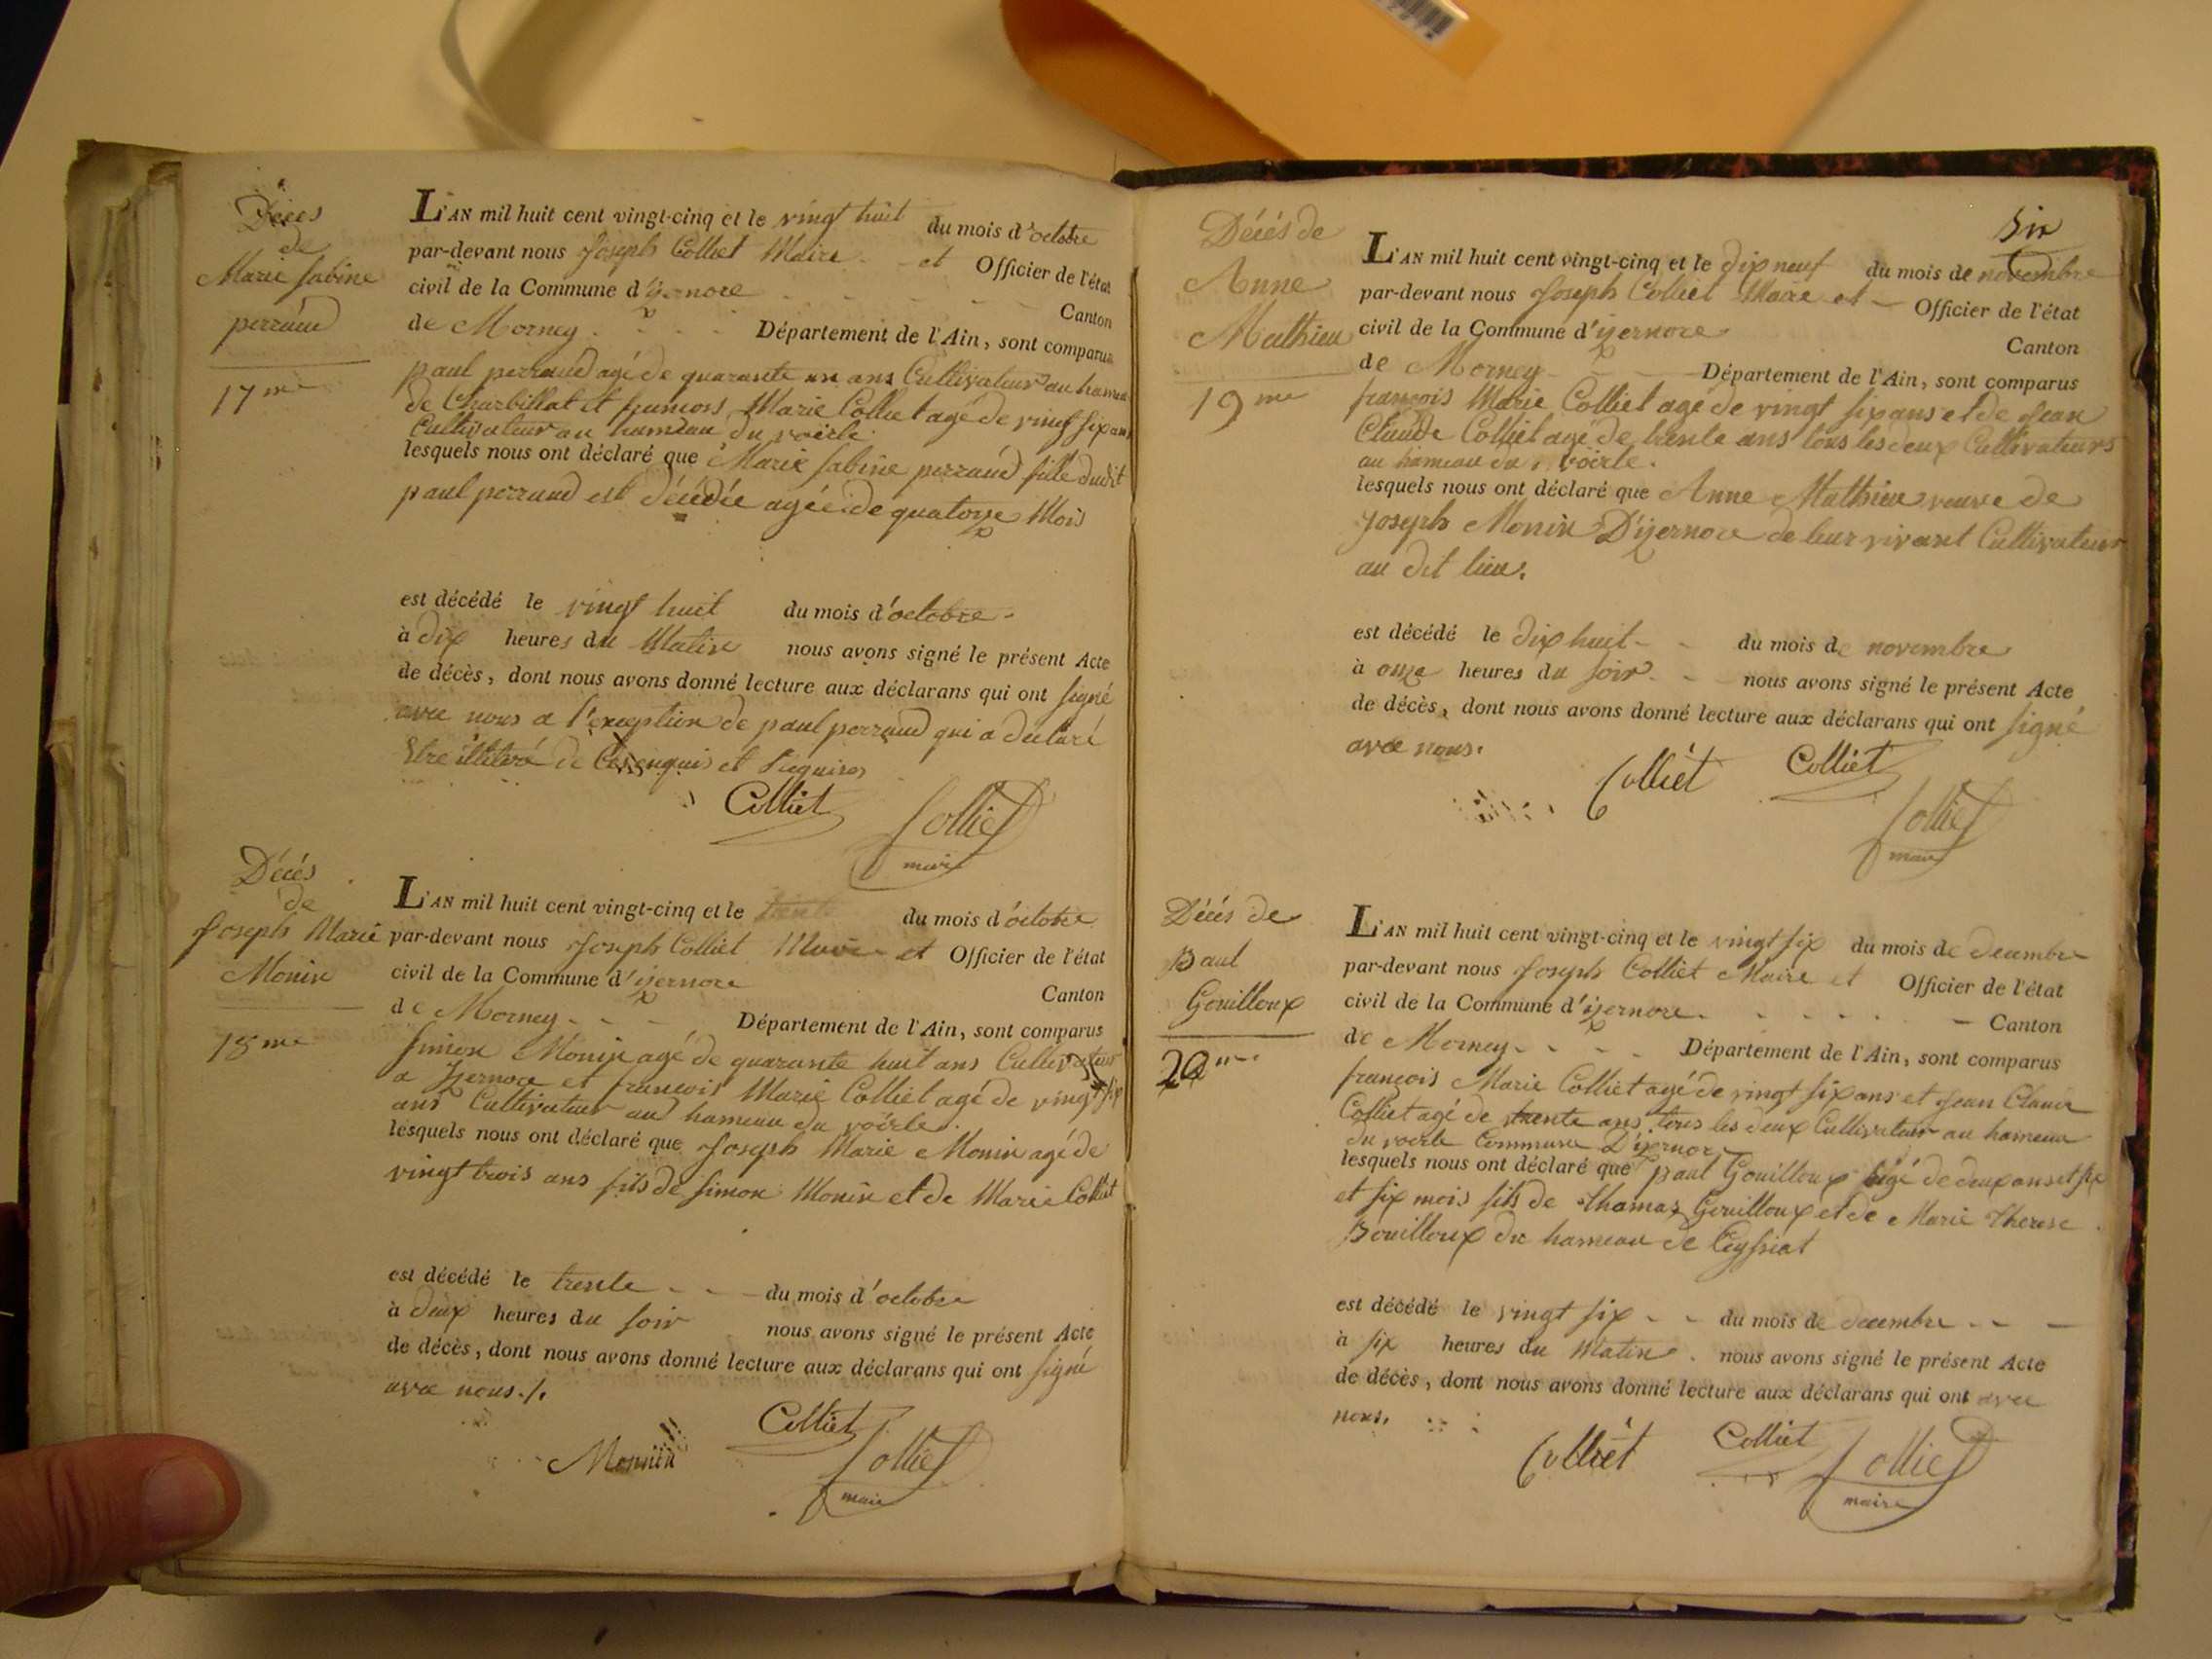 Décès
de
Marie Sabine
perraud
17me
L'AN mil huit cent vingt-cinq et le vingt huit du mois d'octobre
par-devant nous Joseph Colliet Maire et Officier de l'état
civil de la Commune d'yzernore Canton
de Morney Département de l'Ain, sont comparus
paul perraud agé de quarante un ans Cultivateur au hameau
de Charbillat et francois Marie Colliet agé de vingt six ans
Cultivateur au hameau du voërle
lesquels nous ont déclaré que Marie Sabine perraud fille dudit
paul perraud est décédée agée de quatorze Mois
est décédé le vingt huit du mois d'octobre
à dix heures du Matin nous avons signé le présent Acte
de décès, dont nous avons donné lecture aux déclarans qui ont signé
avec nous a l'exception de paul perraud qui a déclaré
Etre illitéré de Ce enquis et Requis
Colliet
Colliet
maire
Décés
de
Joseph Marie
Monin
18me
L'AN mil huit cent vingt-cinq et le trente du mois d'octobre
par-devant nous Joseph Colliet Maire et Officier de l'état
civil de la Commune d'yzernore Canton
de Morney Département de l'Ain, sont comparus
Simon Monin agé de quarante huit ans Cultivateur
a Yzernore et francois Marie Colliet agé de vingt six
ans Cultivateur au hameau du voërle
lesquels nous ont déclaré que Joseph Marie Monin agé de
vingt trois ans fils de Simon Monin et de Marie Colliet
est décédé le trente du mois d'octobre
à deux heures du soir nous avons signé le présent Acte
de décès, dont nous avons donné lecture aux déclarans qui ont signé
avec nous./.
Monnin
Colliet
Colliet
maire
Six
Décés de
Anne
Mathieu
19me
L'AN mil huit cent vingt-cinq et le dix neuf du mois de novembre
par-devant nous Joseph Colliet Maire et Officier de l'état
civil de la Commune d'yzernore Canton
de Morney Département de l'Ain, sont comparus
françois Marie Colliet agé de vingt six ans et de Jean
Claude Colliet agé de trente ans tous les deux Cultivateurs
au hameau du voërle.
lesquels nous ont déclaré que Anne Mathieu veuve de
Joseph Monin D'yzernore de leur vivant Cultivateur
au dit lieu.
est décédé le dix huit du mois de novembre
à onze heures du soir nous avons signé le présent Acte
de décès, dont nous avons donné lecture aux déclarans qui ont signé
avec nous.
Colliet Colliet
Colliet
maire
Décés de
Paul
Gouilloux
20me
L'AN mil huit cent vingt-cinq et le vingt six du mois de decembre
par-devant nous Joseph Colliet Maire et Officier de l'état
civil de la Commune d'yzernore Canton
de Morney Département de l'Ain, sont comparus
françois Marie Colliet agé de vingt six ans et Jean Claude
Colliet agé de trente ans tous les deux Cultivateur au hameau
du voërle Commune D'yzernore
lesquels nous ont déclaré que paul Gouilloux agé de deux ans et six
et six mois fils de Thomas Gouilloux et de Marie Therese
Bouilloux du hameau de Ceyssiat
est décédé le vingt six du mois de decembre
à six heures du Matin nous avons signé le présent Acte
de décès, dont nous avons donné lecture aux déclarans qui ont avec
nous.
Colliet Colliet Colliet
maire